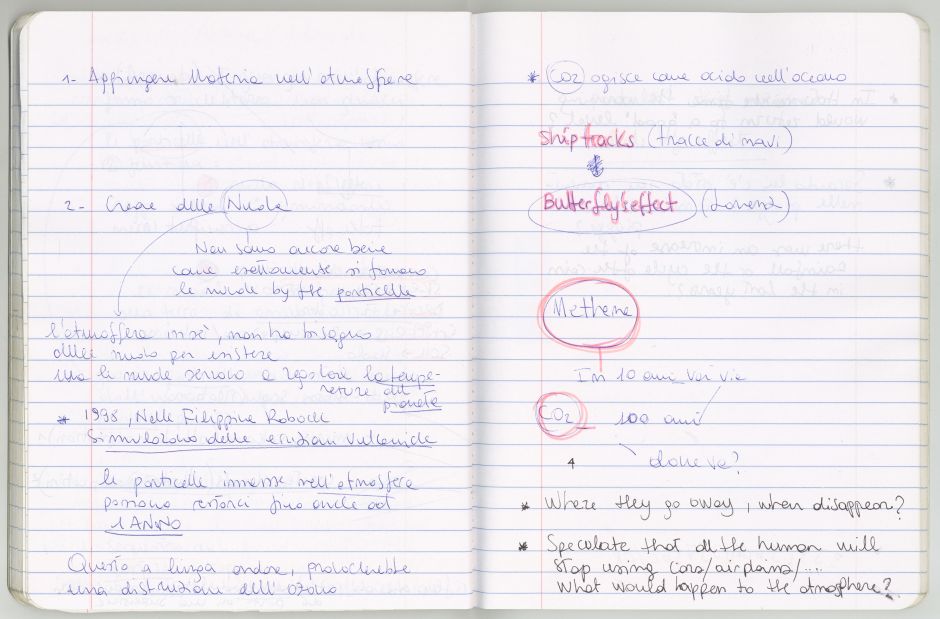 1- Appingere Materia nell'atmosfera
2- Creare delle Nuvole
Non sanno ancora bene
come esattamente si formano
le nuvole by the particelle
l'atmosfera in sè, non ha bisogno
delle nuvole per esistere
ma le nuvole servono a regolare la tempe-
rature del
pianeta
* 1998, Nelle Filippine Robock
Simularono delle eruzioni vulcaniche
le particelle immesse nell'atmosfera
possono restarci fino anche ad
1 ANNO
Questo a lungo andare, provocherebbe
una distruzione dell'ozono
* CO2 agisce come acido nell'oceano
Shiptracks (tracce di navi)
Butterfly's effect (Lorenz)
Methane
In 10 anni va via
CO2 100 anni
dove va?
4
* Where they go away, when disappear?
* Speculate that all the human will
stop using cars/airplains/....
What would happen to the atmosphere?